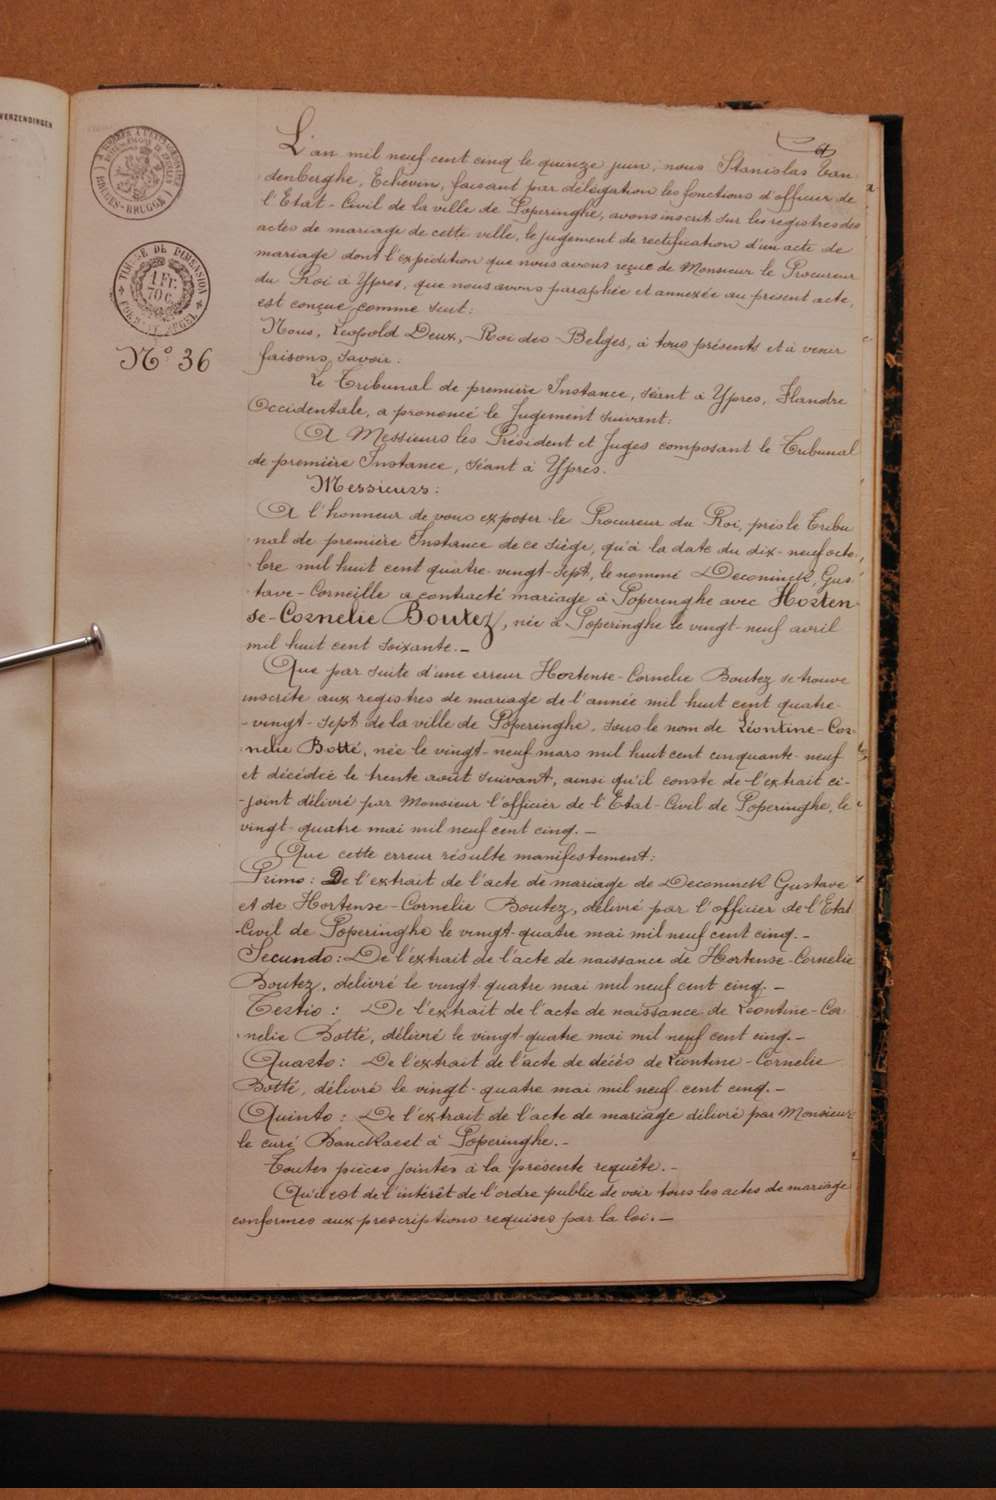 VERZENDINGEN
BRUGES-BRUGGE
TIMBRE DE DIMENSION
1 Fr.
70 C.
N° 36
L'an mil neuf cent cinq le quinze juin, nous Stanislas Van-
denberghe, Echevin, faisant par délégation les fonctions d'officier de
l'Etat-Civil de la ville de Poperinghe, avons inscrit sur les registres des
actes de mariage de cette ville, le jugement de rectification d'un acte de
mariage dont l'expédition que nous avons reçue de Monsieur le Procureur
du Roi à Ypres, que nous avons paraphée et annexée au présent acte,
est conçue comme suit:
Nous, Léopold Deux, Roi des Belges, à tous présents et à venir
faisons savoir:
Le Tribunal de première Instance, séant à Ypres, Flandre
Occidentale, a prononcé le Jugement suivant:
A Messieurs les Président et Juges composant le Tribunal
de première Instance, séant à Ypres.
Messieurs:
A l'honneur de vous exposer le Procureur du Roi, près le Tribu-
nal de première Instance de ce siège, qu'à la date du dix-neuf octo-
bre mil huit cent quatre-vingt-sept, le nommé Deconinck, Gus-
tave-Corneille a contracté mariage à Poperinghe avec Horten-
se-Cornelie Boutez, née à Poperinghe le vingt-neuf avril
mil huit cent soixante.-
Que par suite d'une erreur Hortense-Cornelie Boutez se trouve
inscrite aux registres de mariage de l'année mil huit cent quatre-
-vingt-sept de la ville de Poperinghe, sous le nom de Léontine-Cor-
nelie Botté, née le vingt-neuf mars mil huit cent cinquante-neuf
et décédée le trente août suivant, ainsi qu'il conste de l'extrait ci-
-joint délivré par Monsieur l'officier de l'Etat-Civil de Poperinghe, le
vingt-quatre mai mil neuf cent cinq.-
Que cette erreur résulte manifestement:
Primo: De l'extrait de l'acte de mariage de Deconinck Gustave
et de Hortense-Cornelie Boutez, délivré par l'officier de l'Etat
-Civil de Poperinghe le vingt-quatre mai mil neuf cent cinq.-
Secundo: De l'extrait de l'acte de naissance de Hortense-Cornelie
Boutez, délivré le vingt-quatre mai mil neuf cent cinq.-
Tertio: De l'extrait de l'acte de naissance de Léontine-Cor-
nelie Botté, délivré le vingt-quatre mai mil neuf cent cinq.-
Quarto: De l'extrait de l'acte de décès de Léontine-Cornelie
Botté, délivré le vingt-quatre mai mil neuf cent cinq.-
Quinto: De l'extrait de l'acte de mariage délivré par Monsieur
le curé Banckaert à Poperinghe.-
Toutes pièces jointes à la présente requête.-
Qu'il est de l'intérêt de l'ordre public de voir tous les actes de mariage
conformes aux prescriptions requises par la loi.-